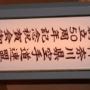 奈川県空手道連盟
立50周年記念祝賀会